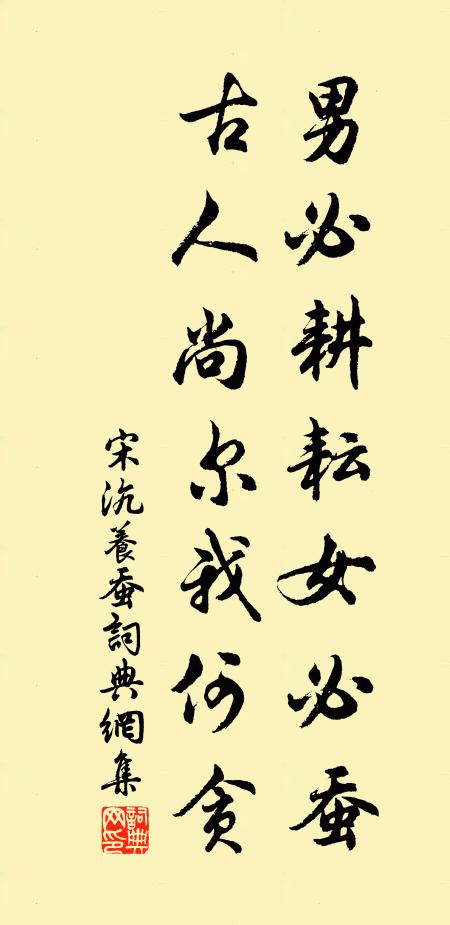 男必耕耘女必蚕
古人尚尔我何贪
宋沉養蚕詞典網集
詞典网印